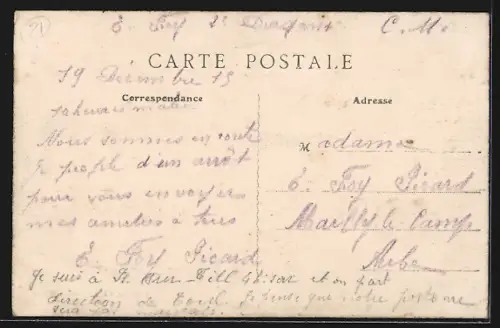 E. Foy 2e Dragons C. M.
CARTE POSTALE
19 Décembre 15
Correspondance
Adresse
heures matin
Nous sommes en route
Je profite d'un arrêt
pour vous envoyer
mes amitiés à tous
E. Foy Picard
Madame
E. Foy Picard
Mailly le Camp
Aube
Je suis à et on part
direction de Toul. Je pense que notre